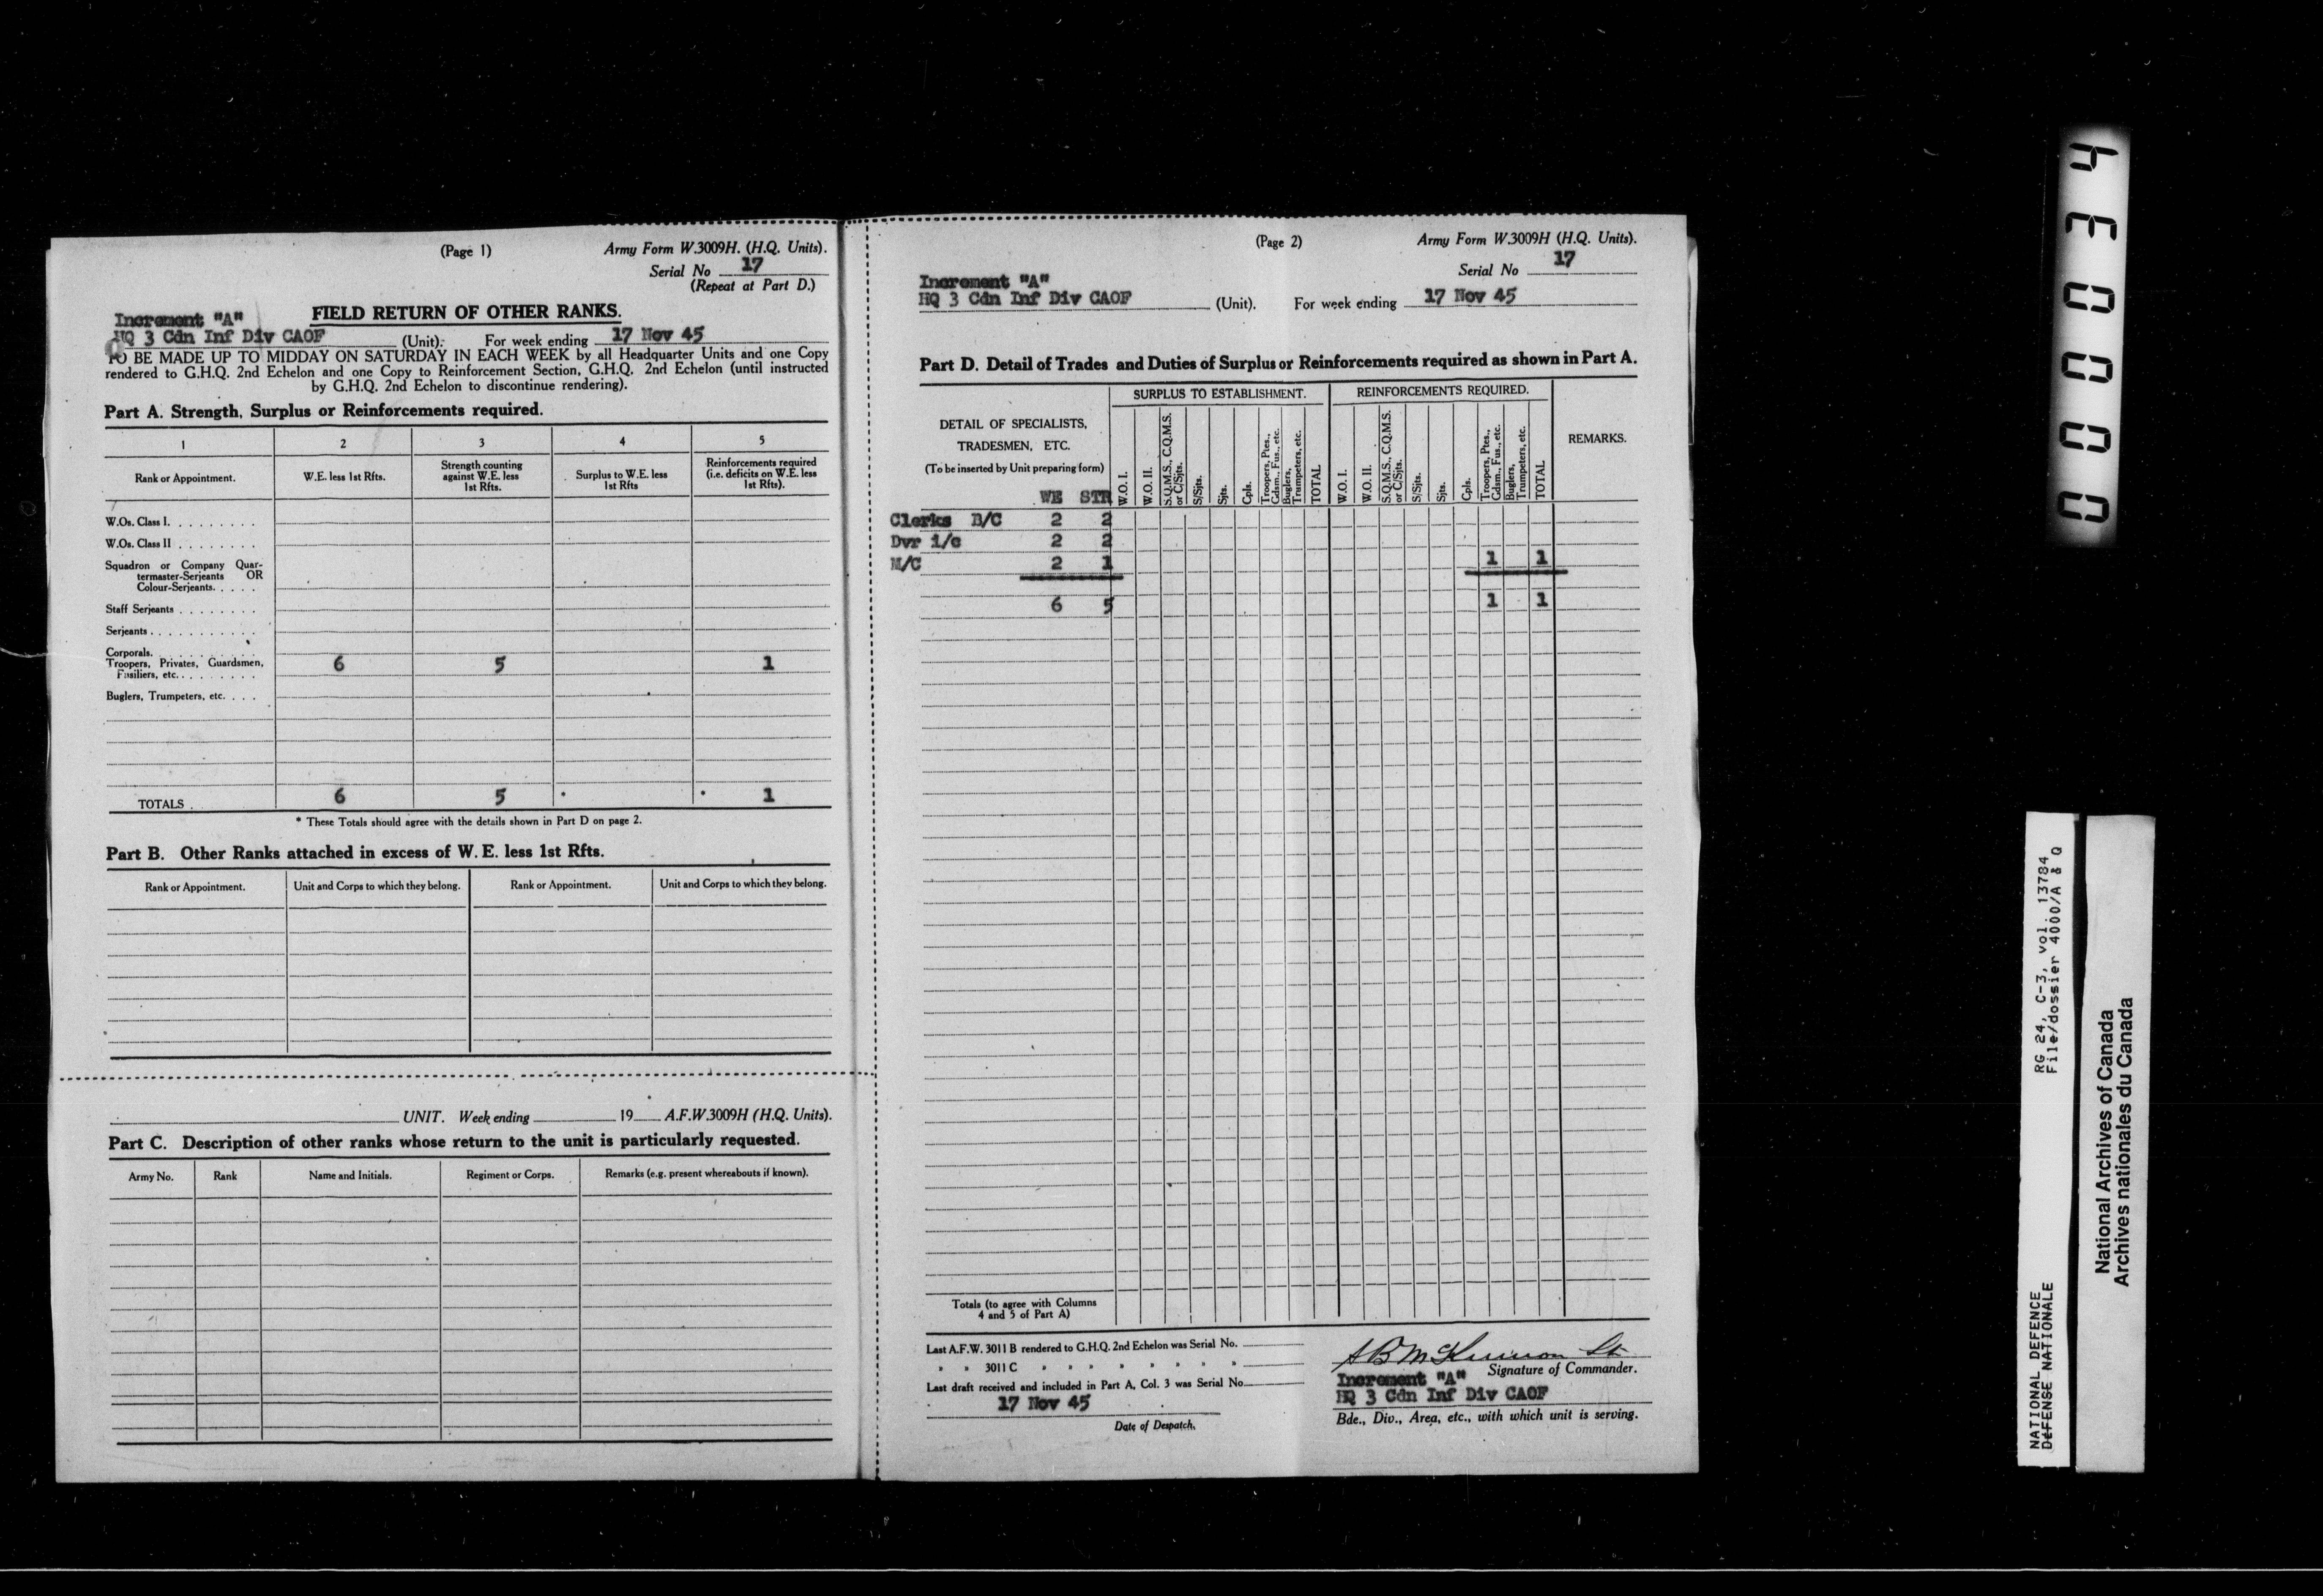 (Page 1)
Army Form W.3009H. (H.Q. Units).
Serial No 17
(Repeat at Part D.)
FIELD RETURN OF OTHER RANKS.
Increment "A"
HQ 3 Cdn Inf Div CAOF (Unit). For week ending 17 Nov 45
TO BE MADE UP TO MIDDAY ON SATURDAY IN EACH WEEK by all Headquarter Units and one Copy
rendered to G.H.Q. 2nd Echelon and one Copy to Reinforcement Section, G.H.Q. 2nd Echelon (until instructed
by G.H.Q. 2nd Echelon to discontinue rendering).
Part A. Strength, Surplus or Reinforcements required.
1 2 3 4 5
Rank or Appointment.
W.E. less 1st Rfts.
Strength counting
against W.E. less
1st Rfts.
Surplus to W.E. less
1st Rfts
Reinforcements required
(i.e. deficits on W.E. less
1st Rfts).
W.Os. Class I.
W.Os. Class II
Squadron or Company Quar-
termaster-Serjeants OR
Colour-Serjeants.
Staff Serjeants
Serjeants
Corporals.
Troopers, Privates, Guardsmen,
Fusiliers, etc. 6 5 1
Buglers, Trumpeters, etc.
TOTALS 6 5 * * 1
* These Totals should agree with the details shown in Part D on page 2.
Part B. Other Ranks attached in excess of W.E. less 1st Rfts.
Rank or Appointment. Unit and Corps to which they belong. Rank or Appointment. Unit and Corps to which they belong.
UNIT. Week ending 19 A.F.W.3009H (H.Q. Units).
Part C. Description of other ranks whose return to the unit is particularly requested.
Army No. Rank Name and Initials. Regiment or Corps. Remarks (e.g. present whereabouts if known).
(Page 2)
Army Form W.3009H (H.Q. Units).
Serial No 17
Increment "A"
HQ 3 Cdn Inf Div CAOF (Unit). For week ending 17 Nov 45
Part D. Detail of Trades and Duties of Surplus or Reinforcements required as shown in Part A.
DETAIL OF SPECIALISTS,
TRADESMEN, ETC.
(To be inserted by Unit preparing form)
WE STR
SURPLUS TO ESTABLISHMENT.
W.O. I.
W.O. II.
S.Q.M.S., C.Q.M.S.
or C/Sjts.
S/Sjts.
Sjts.
Cpls.
Troopers, Ptes.,
Gdsm., Fus., etc.
Buglers,
Trumpeters, etc.
TOTAL
REINFORCEMENTS REQUIRED.
W.O. I.
W.O. II.
S.Q.M.S., C.Q.M.S.
or C/Sjts.
S/Sjts.
Sjts.
Cpls.
Troopers, Ptes.,
Gdsm., Fus., etc.
Buglers,
Trumpeters, etc.
TOTAL
REMARKS.
Clerks B/C 2 2
Dvr i/c 2 2
M/C 2 1 1 1
6 5 1 1
Totals (to agree with Columns
4 and 5 of Part A)
Last A.F.W. 3011 B rendered to G.H.Q. 2nd Echelon was Serial No.
" " 3011 C " " " " " " " "
Last draft received and included in Part A, Col. 3 was Serial No
17 Nov 45
Date of Despatch.
Signature of Commander.
Increment "A"
HQ 3 Cdn Inf Div CAOF
Bde., Div., Area, etc., with which unit is serving.
000034
NATIONAL DEFENCE RG 24, C-3, vol. 13784
DÉFENSE NATIONALE File/dossier 4000/A & Q
National Archives of Canada
Archives nationales du Canada